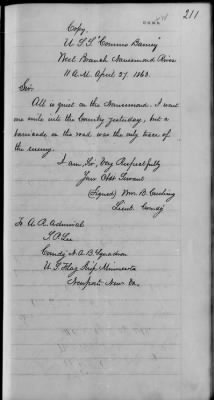 211
Copy.
U.S.S "Commo Barney"
West Branch Nansemond River
11 A.M. April 27. 1863.
Sir:
All is quiet on the Nansemond. I went
one mile into the County yesterday, but a
barricade on the road was the only trace of
the enemy.
I am, Sir, Very Respectfully
Your Obdt Servant
(Signed) Wm. B. Cushing
Lieut. Comdg
To A.R. Admiral
S.P. Lee
Comdg N.A.B. Squadron
U.S. Flag Ship Minnesota
Newport News Va.